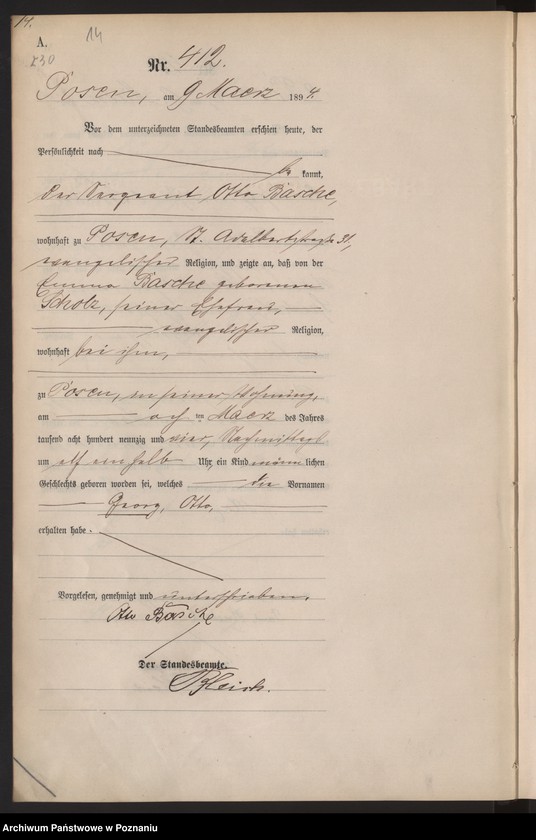 14.
A.
14
230
Nr. 412.
Posen, am 9 Maerz 1894.
Vor dem unterzeichneten Standesbeamten erschien heute, der
Persönlichkeit nach
be kannt,
der Sergeant Otto Basche,
wohnhaft zu Posen, St. Adalbertstraße 31,
evangelischer Religion, und zeigte an, daß von der
Emma Basche geborenen
Scholz, seiner Ehefrau,
evangelischer Religion,
wohnhaft bei ihm,
zu Posen, in seiner Wohnung,
am acht ten Maerz des Jahres
tausend acht hundert neunzig und vier, Nachmittags
um elf einhalb Uhr ein Kind männ lichen
Geschlechts geboren worden sei, welches die Vornamen
Georg, Otto,
erhalten habe.
Vorgelesen, genehmigt und unterschrieben.
Otto Basche
Der Standesbeamte.
Archiwum Państwowe w Poznaniu